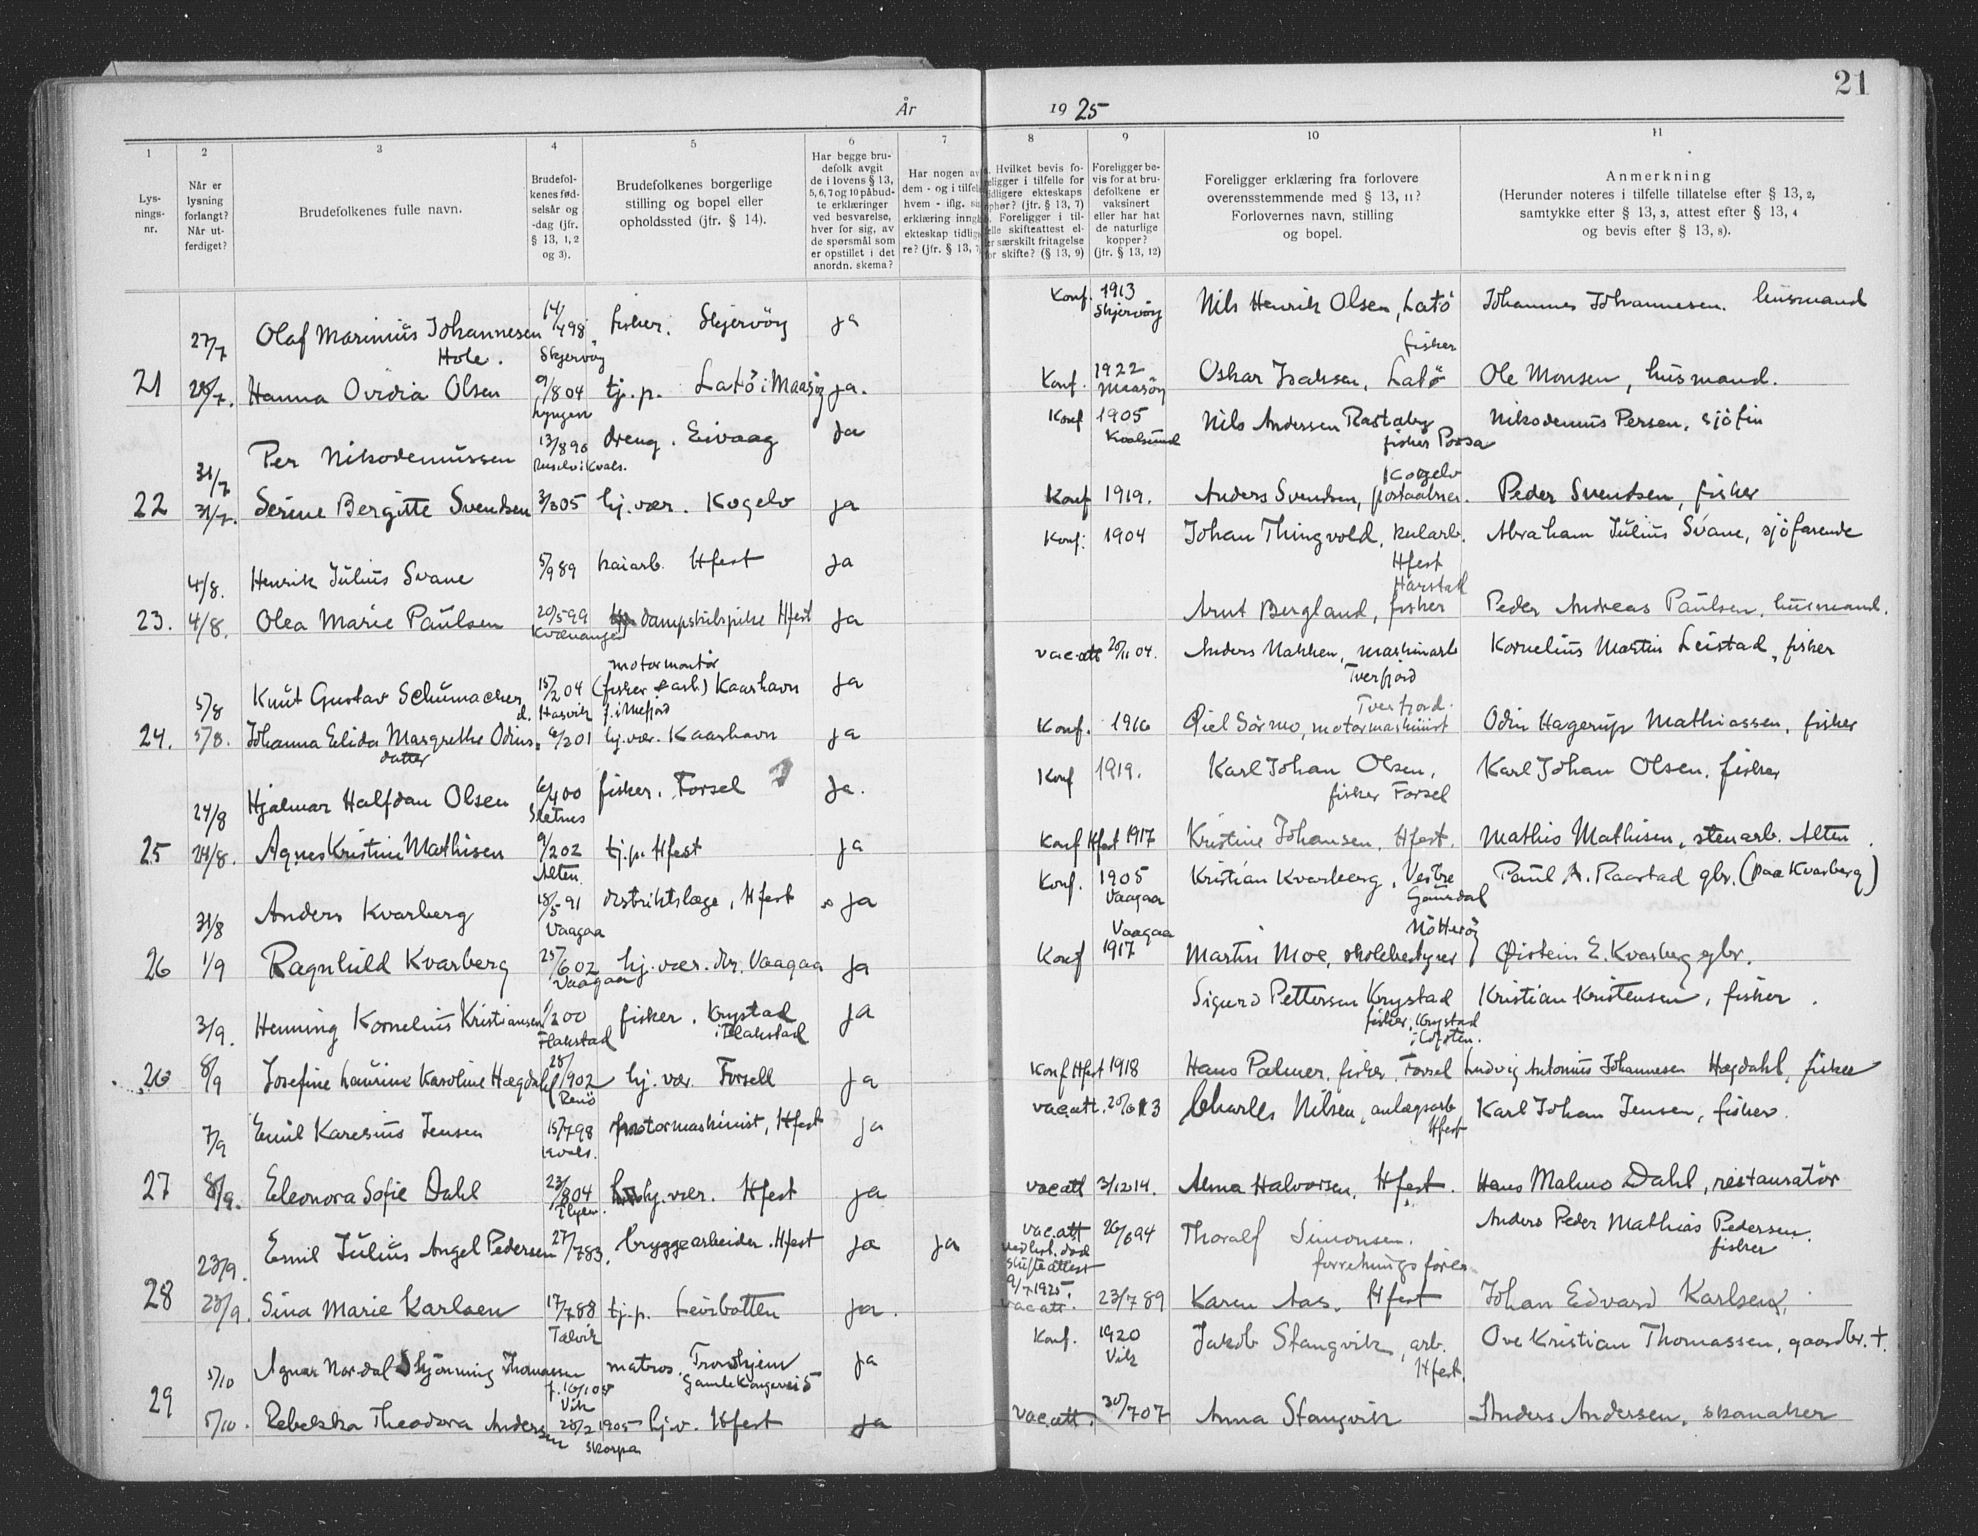 21
År 1925
1 2 3 4 5 6 7 8 9 10 11
Lysnings-nr.
Når er lysning forlangt? Når utferdiget?
Brudefolkenes fulle navn.
Brudefolkenes fødselsår og -dag (jfr. § 13, 1, 2 og 3).
Brudefolkenes borgerlige stilling og bopel eller opholdssted (jfr. § 14).
Har begge brudefolk avgit de i lovens § 13, 5, 6, 7 og 10 påbudte erklæringer ved besvarelse, hver for sig, av de spørsmål som er opstillet i det anordn. skema?
Har nogen av dem - og i tilfelle hvem - iflg. sin erklæring inngått ekteskap tidligere? (jfr. § 13, 7
Hvilket bevis foreligger i tilfelle for tidligere ekteskaps ophør? (jfr. § 13, 7) Foreligger i tilfelle skifteattest eller særskilt fritagelse for skifte? (§ 13, 9)
Foreligger bevis for at brudefolkene er vaksinert eller har hat de naturlige kopper? (jfr. § 13, 12)
Foreligger erklæring fra forlovere overensstemmende med § 13, 11? Forlovernes navn, stilling og bopel.
Anmerkning (Herunder noteres i tilfelle tillatelse efter § 13, 2, samtykke efter § 13, 3, attest efter § 13, 4 og bevis efter § 13, 8).
27/7 Olaf Marinius Johannesen Hole. 14/498 Skjervöy fisker. Skjervöy ja Konf. 1913 Skjervöy Nils Henrik Olsen, Latö fisker Johannes Johannesen. husmand
21 28/7. Hanna Ovidia Olsen 9/804 Lyngen tj.p. Latö i Maasöy ja. Konf. 1922 Maasöy Oskar Isaksen, Latö Ole Monsen, husmand.
31/7 Per Nikodemussen 13/890 Kvals. dreng. Eivaag ja Konf 1905 Kvalsund Nils Andersen Rastaby fisker Porsa Nikodemus Persen, sjöfin
22 31/7. Serine Bergitte Svendsen 3/805 hj.vær. Kogelv ja Konf 1919. Anders Svendsen, Kogelv postaabner. Peder Svendsen, fisker
4/8. Henrik Julius Svane 5/989 kaiarb. Hfest ja Konf. 1904 Johan Thingvold, kularb. Hfest Abraham Julius Svane, sjöfarende
23. 4/8. Olea Marie Paulsen 20/599 Kvænangen dampskibspike Hfest ja Arnt Bergland, Harstad fisker Peder Andreas Paulsen, husmand.
5/8 Knut Gustav Schumacher d. 15/204 Hasvik motormontör (fisker & arb.) Kaarhavn f. i Mefjord ja vac.att 20/11 04. Anders Nakken, maskinarb Tverfjord Kornelius Martin Leistad, fisker
24. 5/8. Johanna Elida Margrethe Odinsdatter 6/201 hj.vær. Kaarhavn ja Konf. 1916 Tverfjord. Sörmo, motormaskinist Odin Hagerup Mathiassen, fisker
24/8 Hjalmar Halfdan Olsen 6/400 Sletnes fisker, Forsel ja. Konf 1919. Karl Johan Olsen, fisker Forsel Karl Johan Olsen, fisker
25 24/8. Agnes Kristine Mathisen 9/202 Alten tj.p. Hfest ja Konf Hfest 1917 Kristine Johansen, Hfest. Mathis Mathisen, stenarb. Alten
31/8 Anders Kvarberg 18/591 Vaagaa distriktslæge, Hfest ja Konf. 1905 Vaagaa Kristian Kvarberg, Vestre Gausdal Paul A. Raastad gbr. (paa Kvarberg)
26 1/9 Ragnhild Kvarberg 25/602 Vaagaa hj.vær. Vaagaa ja Konf Vaagaa 1917 Martin Moe, skolebestyrer Nötteröy Øistein E. Kvarberg gbr.
3/9. Henning Kornelius Kristiansen 1/200 Flakstad fisker. Krystad i Flakstad ja Sigurd Pettersen Krystad fisker, Krystad i Lofoten. Kristian Kristensen, fisker.
26 8/9 Josefine Laurine Karoline Hægdahl 28/1902 Renö hj.vær. Forsell ja Konf Hfest 1918 Hans Palmer, fisker, Forsel Ludvig Antonius Johannesen Hægdahl, fisker
7/9 Emil Karesius Jensen 15/798 Kvals. motormaskinist, Hfest ja vac.att. 20/6 13 Charles Nilsen, anlægsarb. Hfest Karl Johan Jensen, fisker.
27 8/9. Eleonora Sofie Dahl 23/804 hj.vær. Hfest ja vac.att 3/12 14. Alma Halvorsen, Hfest. Hans Malmo Dahl, restauratör
23/9. Emil Julius Angel Pedersen 27/783. bryggearbeider. Hfest ja ja vac.att skifteattest 9/7 1925. 26/6 94 Thoralf Simonsen. forretningsförer Anders Peder Mathias Pedersen. fisker
28 23/9. Sina Marie Karlsen 17/788 Talvik tj.p. Leirbotten ja. vac.att. 23/7 89 Karen Aas. Hfest Johan Edvard Karlsen,
5/10 Agnar Nordal Skjönning Thomassen f. 16/10 Vik matros. Trondhjem Gamle Kongevei 5 ja Konf. 1920 Vik Jakob Stangvik, arb. Hfest. Ove Kristian Thomassen, gaardbr. +.
29 5/10. Rebekka Theodora Andersen 28/2 1905 Skorpa hj.v. Hfest ja vac.att. 30/7 07 Anna Stangvik Anders Andersen, skomaker